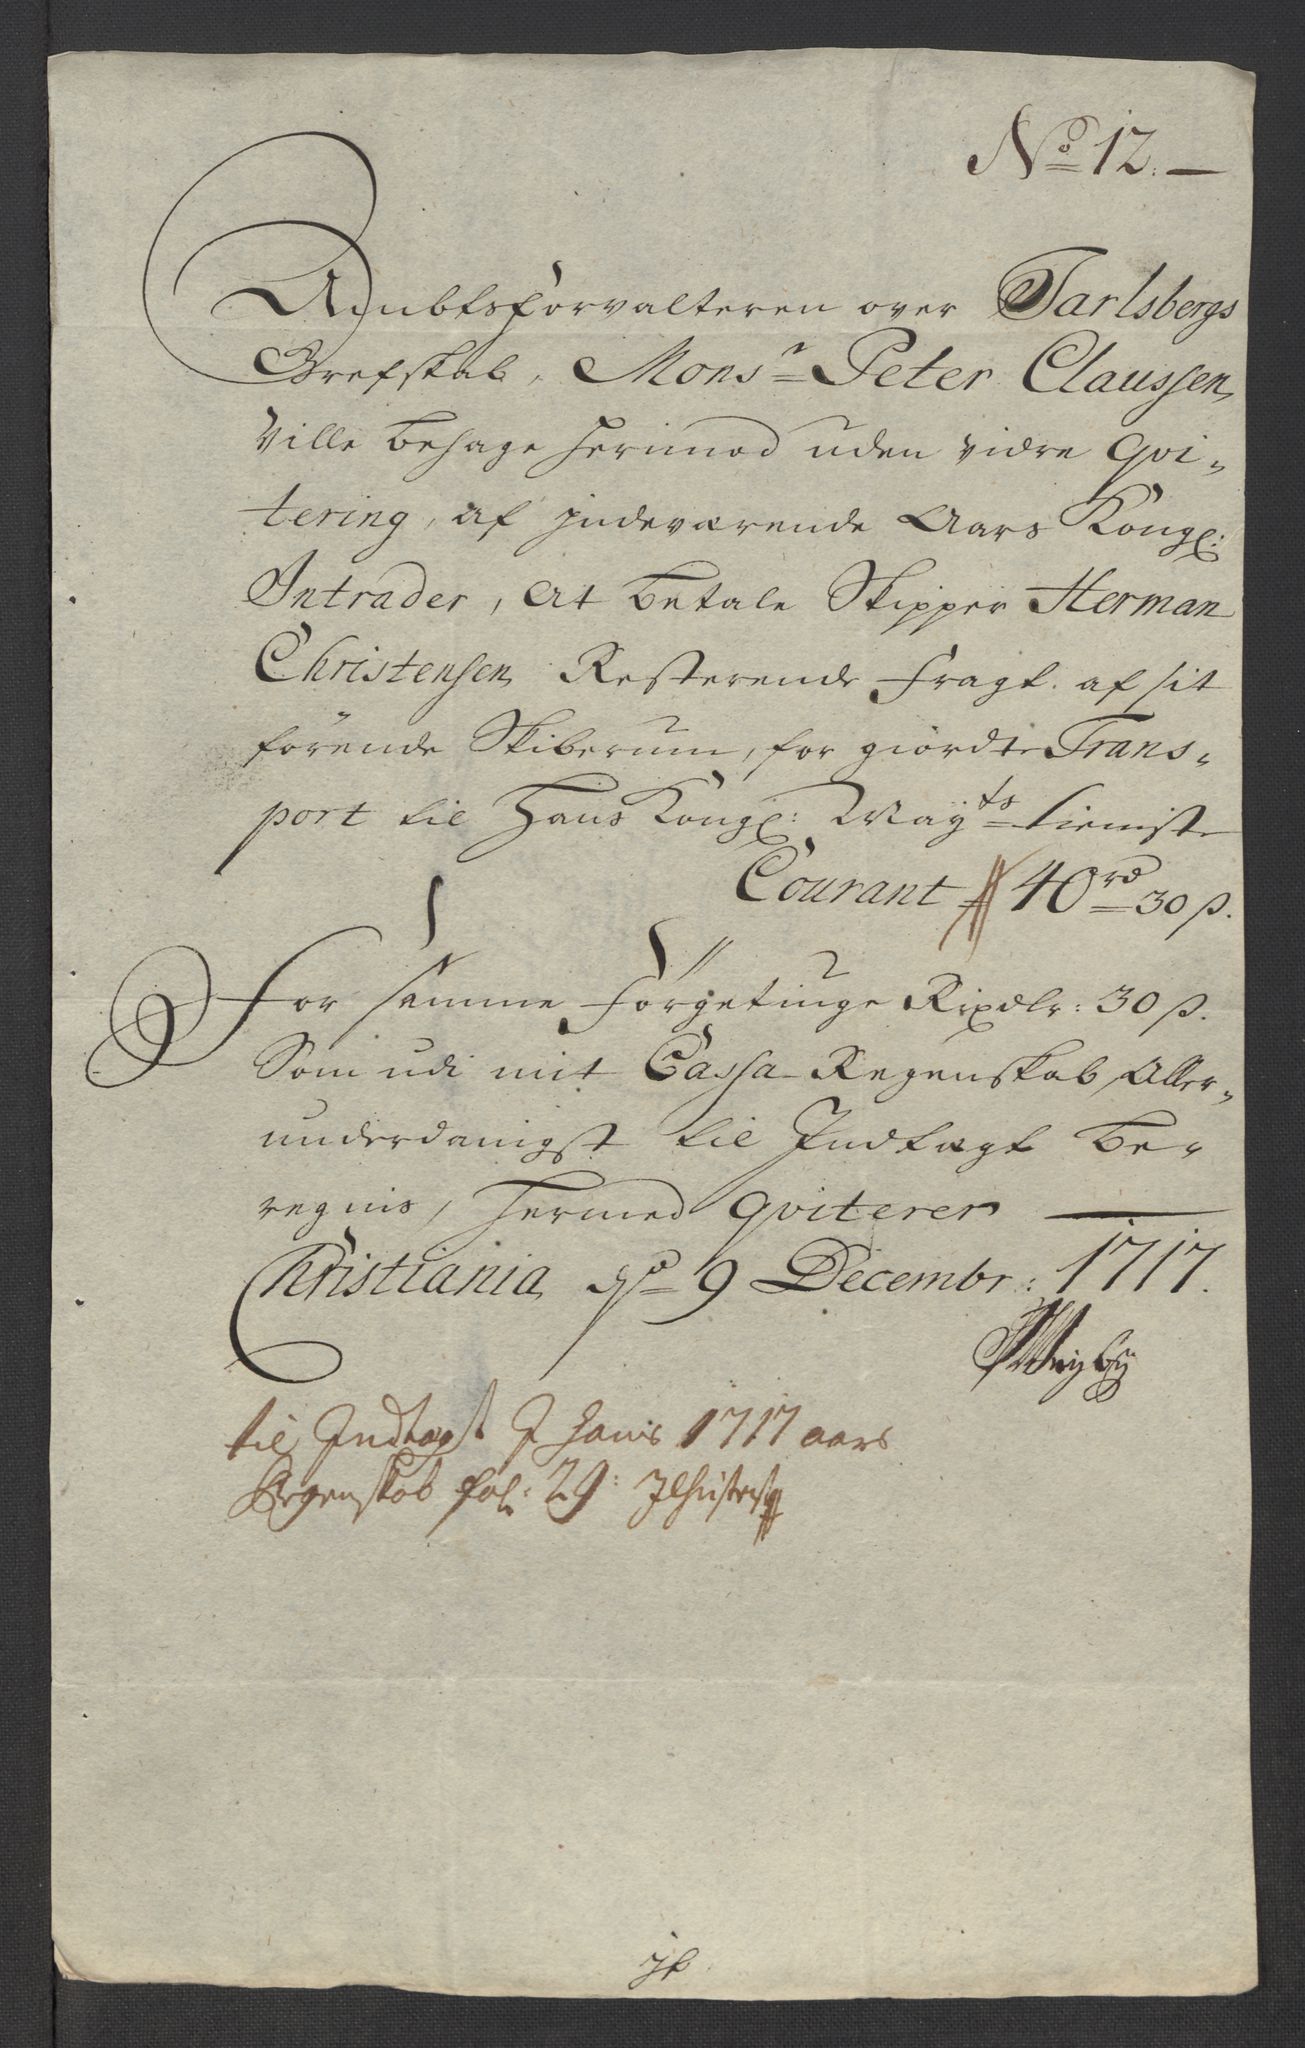 No 12. —
Ambtsforvalteren over Jarlsbergs
Grefskab, Monsr Peter Claussen,
Ville behage herimod uden vidre qvi-
tering, af indeværende Aars Kongl:
Intrader, at betale Skipper Herman
Christensen, Resterende Fragt af sit
förende Skiberum, for giordte Trans-
port til Hans Kongl: Mayts tieniste
Courant # 40 rd 30 ß.
For sammeFörgetiuge Rixdlr: 30 ß.
Som udi mit Cassa Regenskab Aller-
underdanigst til Indtægt be-
regnis, hermed qviterer
Christiania, dn 9 Decembr: 1717.
til Indtægt J hans 1717 aars
Regenskab fol: 29: